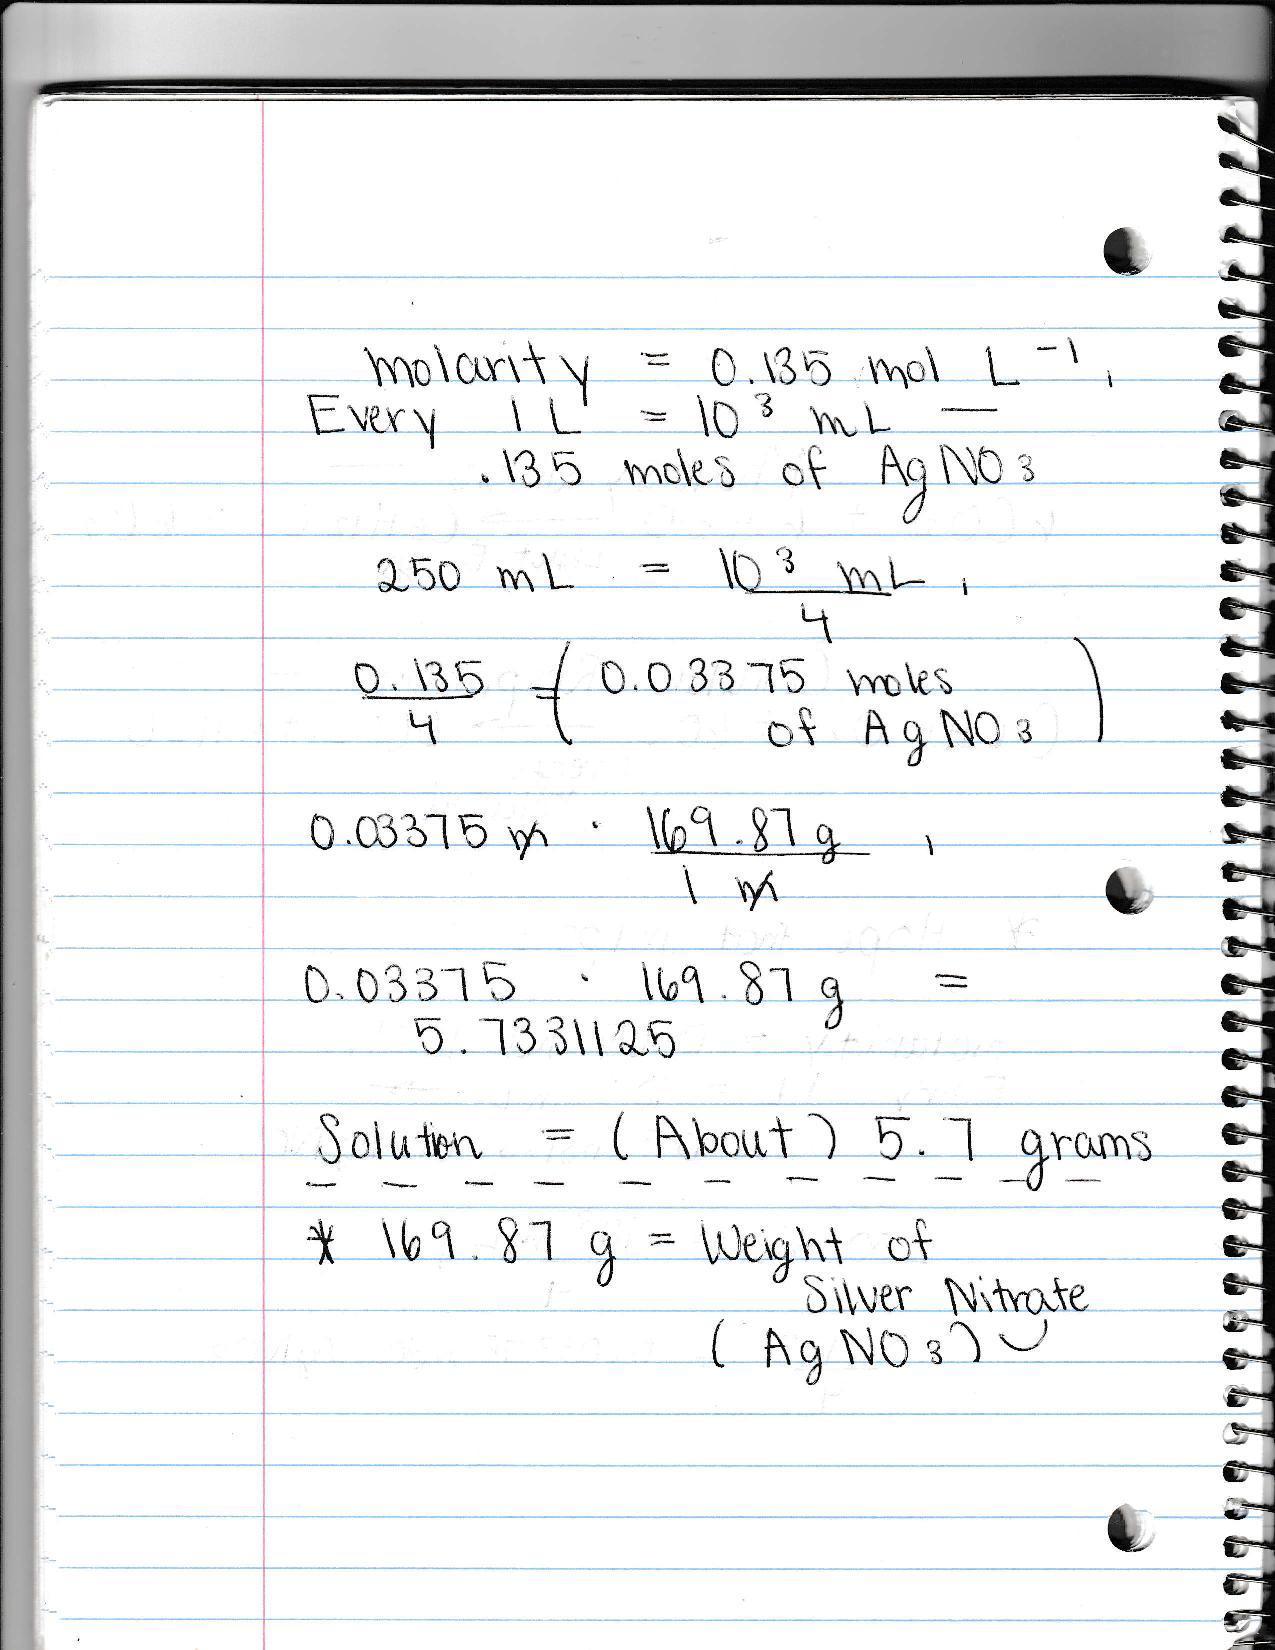 Molarity = 0.135 mol L⁻¹,
Every 1 L = 10³ mL —
.135 moles of AgNO₃
250 mL = 10³ mL,
4
0.135 = ( 0.03375 moles
4 of AgNO₃ )
0.03375 m · 169.87 g,
1 m
0.03375 · 169.87 g =
5.7331125
Solution = (About) 5.7 grams
* 169.87 g = Weight of
Silver Nitrate
(AgNO₃)